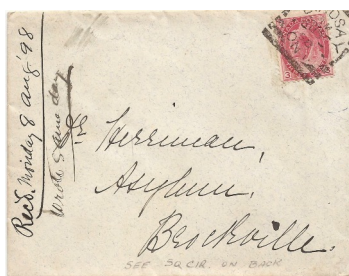 Recd. Monday 8 Aug '98
wrote same day
Dr. Herriman,
Asylum,
Brockville.
SEE SQ CIR. ON BACK